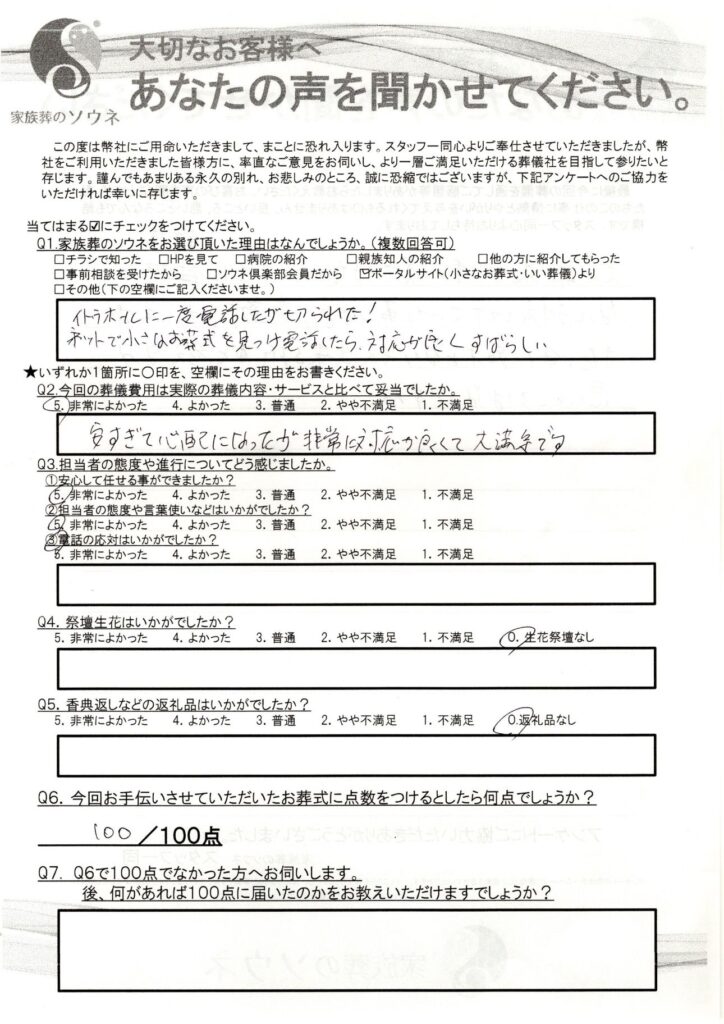 大切なお客様へ
あなたの声を聞かせてください。
家族葬のソウネ
この度は弊社にご用命いただきまして、まことに恐れ入ります。スタッフ一同心よりご奉仕させていただきましたが、弊
社をご利用いただきました皆様方に、率直なご意見をお伺いし、より一層ご満足いただける葬儀社を目指して参りたいと
存じます。謹んでもあまりある永久の別れ、お悲しみのところ、誠に恐縮ではございますが、下記アンケートへのご協力を
いただければ幸いに存じます。
当てはまる☑にチェックをつけてください。
Q1.家族葬のソウネをお選び頂いた理由はなんでしょうか。(複数回答可)
□チラシで知った □HPを見て □病院の紹介 □親族知人の紹介 □他の方に紹介してもらった
□事前相談を受けたから □ソウネ倶楽部会員だから ☑ポータルサイト(小さなお葬式・いい葬儀)より
□その他(下の空欄にご記入くださいませ。)
イトラホールに一度電話したが切られた!
ネットで小さなお葬式を見つけ電話したら、対応が良くすばらしい
★いずれか1箇所に○印を、空欄にその理由をお書きください。
Q2.今回の葬儀費用は実際の葬儀内容・サービスと比べて妥当でしたか。
5. 非常によかった 4. よかった 3. 普通 2. やや不満足 1. 不満足
安すぎて心配になったが非常に対応が良くて大満足です
Q3.担当者の態度や進行についてどう感じましたか。
①安心して任せる事ができましたか?
5. 非常によかった 4. よかった 3. 普通 2. やや不満足 1. 不満足
②担当者の態度や言葉使いなどはいかがでしたか?
5. 非常によかった 4. よかった 3. 普通 2. やや不満足 1. 不満足
③電話の応対はいかがでしたか?
5. 非常によかった 4. よかった 3. 普通 2. やや不満足 1. 不満足
Q4. 祭壇生花はいかがでしたか?
5. 非常によかった 4. よかった 3. 普通 2. やや不満足 1. 不満足 0. 生花祭壇なし
Q5. 香典返しなどの返礼品はいかがでしたか?
5. 非常によかった 4. よかった 3. 普通 2. やや不満足 1. 不満足 0.返礼品なし
Q6. 今回お手伝いさせていただいたお葬式に点数をつけるとしたら何点でしょうか?
100 /100点
Q7. Q6で100点でなかった方へお伺いします。
後、何があれば100点に届いたのかをお教えいただけますでしょうか?